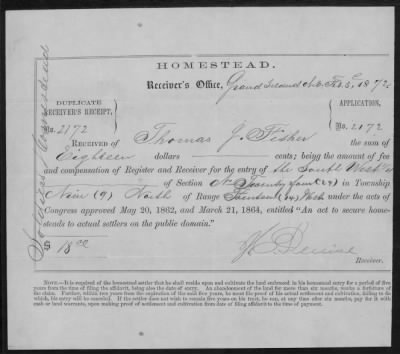 HOMESTEAD.
Receiver's Office, Grand Island Neb. 187
DUPLICATE
RECEIVER'S RECEIPT,
No. 2172
APPLICATION,
No. 2172
RECEIVED OF Thomas J. Fisher the sum of
Eighteen dollars cents; being the amount of fee
and compensation of Register and Receiver for the entry of the South West 1/4
of Section No Twenty four (24) in Township
Nine (9) North of Range Fourteen (14) West under the acts of
Congress approved May 20, 1862, and March 21, 1864, entitled "An Act to secure home-
steads to actual settlers on the public domain."
$ 18.00
Receiver.
Soldiers Homestead
NOTE.—It is required of the homestead settler that he shall reside upon and cultivate the land embraced in his homestead entry for a period of five
years from the time of filing the affidavit, being also the date of entry. An abandonment of the land for more than six months, works a forfeiture of
his claim. Further, within two years from the expiration of the said five years, he must file proof of his actual settlement and cultivation, failing to do
which, his entry will be canceled. If the settler does not wish to remain five years on his tract, he can, at any time after six months, pay for it with
cash or land warrants, upon making proof of settlement and cultivation from date of filing affidavit to the time of payment.